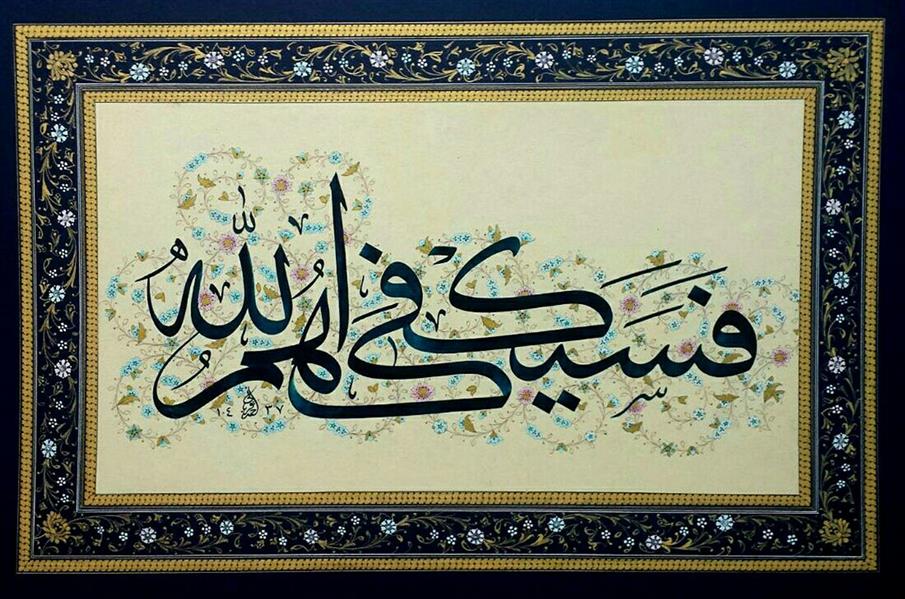 فسيكفيكهم الله
١٤٣٧